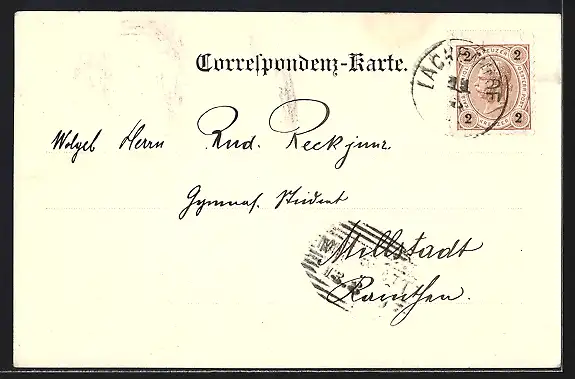 Correspondenz-Karte.
2 KREUZER 2
2 2
Wolgeb Herrn Rud. Reckjunz
Gymnas. Student
Millstadt
Karnthen.